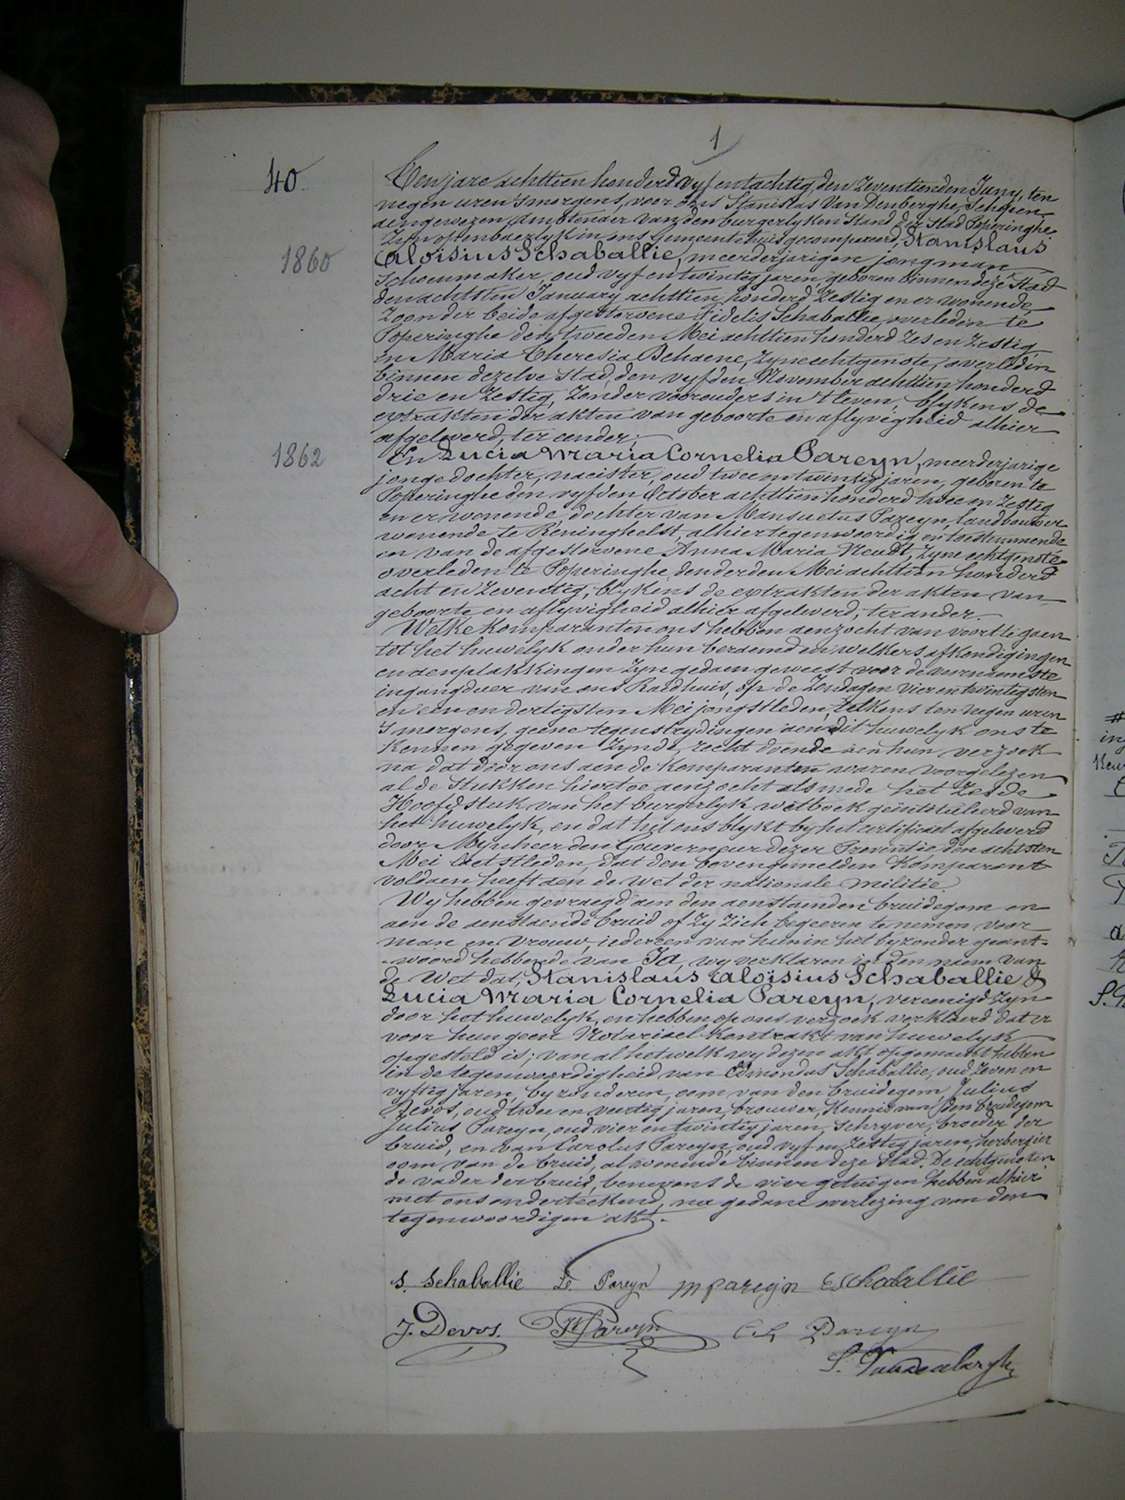 1
40.
Ten jare achttien honderd vyf en tachtig, den Zeventienden Juny, ten
negen uren 's morgens, voor ons Stanislas Van Denberghe, Schepen
aengewezen Ambtenaer van den burgerlyken Stand der Stad Poperinghe
Zyn oftenbaerlyk in ons Gemeentehuis gecompareerd, Stanislaus
1860
Aloisius Schaballie, meerderjarigen jongman
Schoenmaker, oud vyf en twintig jaren, geboren binnen deze Stad
den achtsten January achttien honderd Zestig en er wonende,
Zoon der beide afgestorvene Fidelis Schaballie, overleden te
Poperinghe den tweeden Mei achttien honderd Zes en Zestig
en Maria Theresia Behaene, Zyne echtgenote, overleden
binnen dezelve Stad, den vyfden November achttien honderd
drie en Zestig, Zonder voorouders in 't leven; blykens de
extrakten der akten van geboorte en aflyvigheid alhier
afgeleverd, ter eender.
1862
En Lucia Maria Cornelia Pareyn, meerderjarige
jonge dochter, naeister, oud twee en twintig jaren, geboren te
Poperinghe den vyfden October achttien honderd twee en Zestig
en er wonende, dochter van Mansuetus Pareyn, landbouwer
wonende te Reninghelst, alhier tegenwoordig en toestemmende
en van de afgestorvene Anna Maria Neudt, Zyne echtgenote
overleden te Poperinghe, den derden Mei achttien honderd
acht en Zeventig, blykens de extrakten der akten van
geboorte en aflyvigheid alhier afgeleverd, ter ander.
Welke Komparanten ons hebben aenzocht van voort te gaen
tot het huwelyk onder hun beraemd en welkers afkondigingen
en aenplakkingen Zyn gedaen geweest voor de voornaemste
ingangdeur van ons Raedhuis, op de Zondagen vier en twintigsten
en een en dertigsten Mei jongstleden, telkens ten negen uren
's morgens, geene tegenstrydingen aen dit huwelyk ons te
kennen gegeven Zynde, recht doende aen hun verzoek
na dat door ons aen de komparanten waren voorgelezen
al de Stukken hiertoe aenzocht alsmede het Zesde
Hoofdstuk van het burgerlyk wetboek geïntituleerd van
het huwelyk, en dat het ons blykt by het certificaet afgeleverd
door Mynheer den Gouverneur dezer Provintie den achtsten
Mei laetstleden, dat den bovengemelden Komparant
voldaen heeft aen de wet der nationale militie.
Wy hebben gevraegd aen den aenstaenden bruidegom en
aen de aenstaende bruid of Zy Zich begeeren te nemen voor
man en vrouw, iedereen van hun in het byzonder geant-
woord hebbende van Ja, wy verklaren in den naem van
de Wet dat, Stanislaus Aloisius Schaballie &
Lucia Maria Cornelia Pareyn, vereenigd Zyn
door het huwelyk, en hebben op ons verzoek verklaerd dat er
voor hun geen Notarieel Kontrakt van huwelyk
opgesteld is; van al hetwelk wy dezen akt opgemaekt hebben
in de tegenwoordigheid van Edmondus Schaballie, oud Zeven en
vyftig jaren, byzonderen, oom van den bruidegom, Julius
Devos, oud twee en veertig jaren, brouwer, Kennis van den bruidegom
Julius Pareyn, oud vier en twintig jaren, Schryver, broeder der
bruid, en van Carolus Pareyn, oud vyf en Zestig jaren, herbergier
oom van de bruid, al wonende binnen deze Stad. De echtgenoten
de vader der bruid, benevens de vier getuigen hebben alhier
met ons onderteekend, na gedane overlezing van den
tegenwoordigen akt.
S. Schaballie L. Pareyn M Pareyn E Schaballie
J. Devos. Pareyn Pareyn
S. Vandenberghe